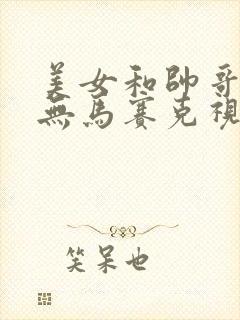 美女和帥哥
無馬賽克視
笑呆也